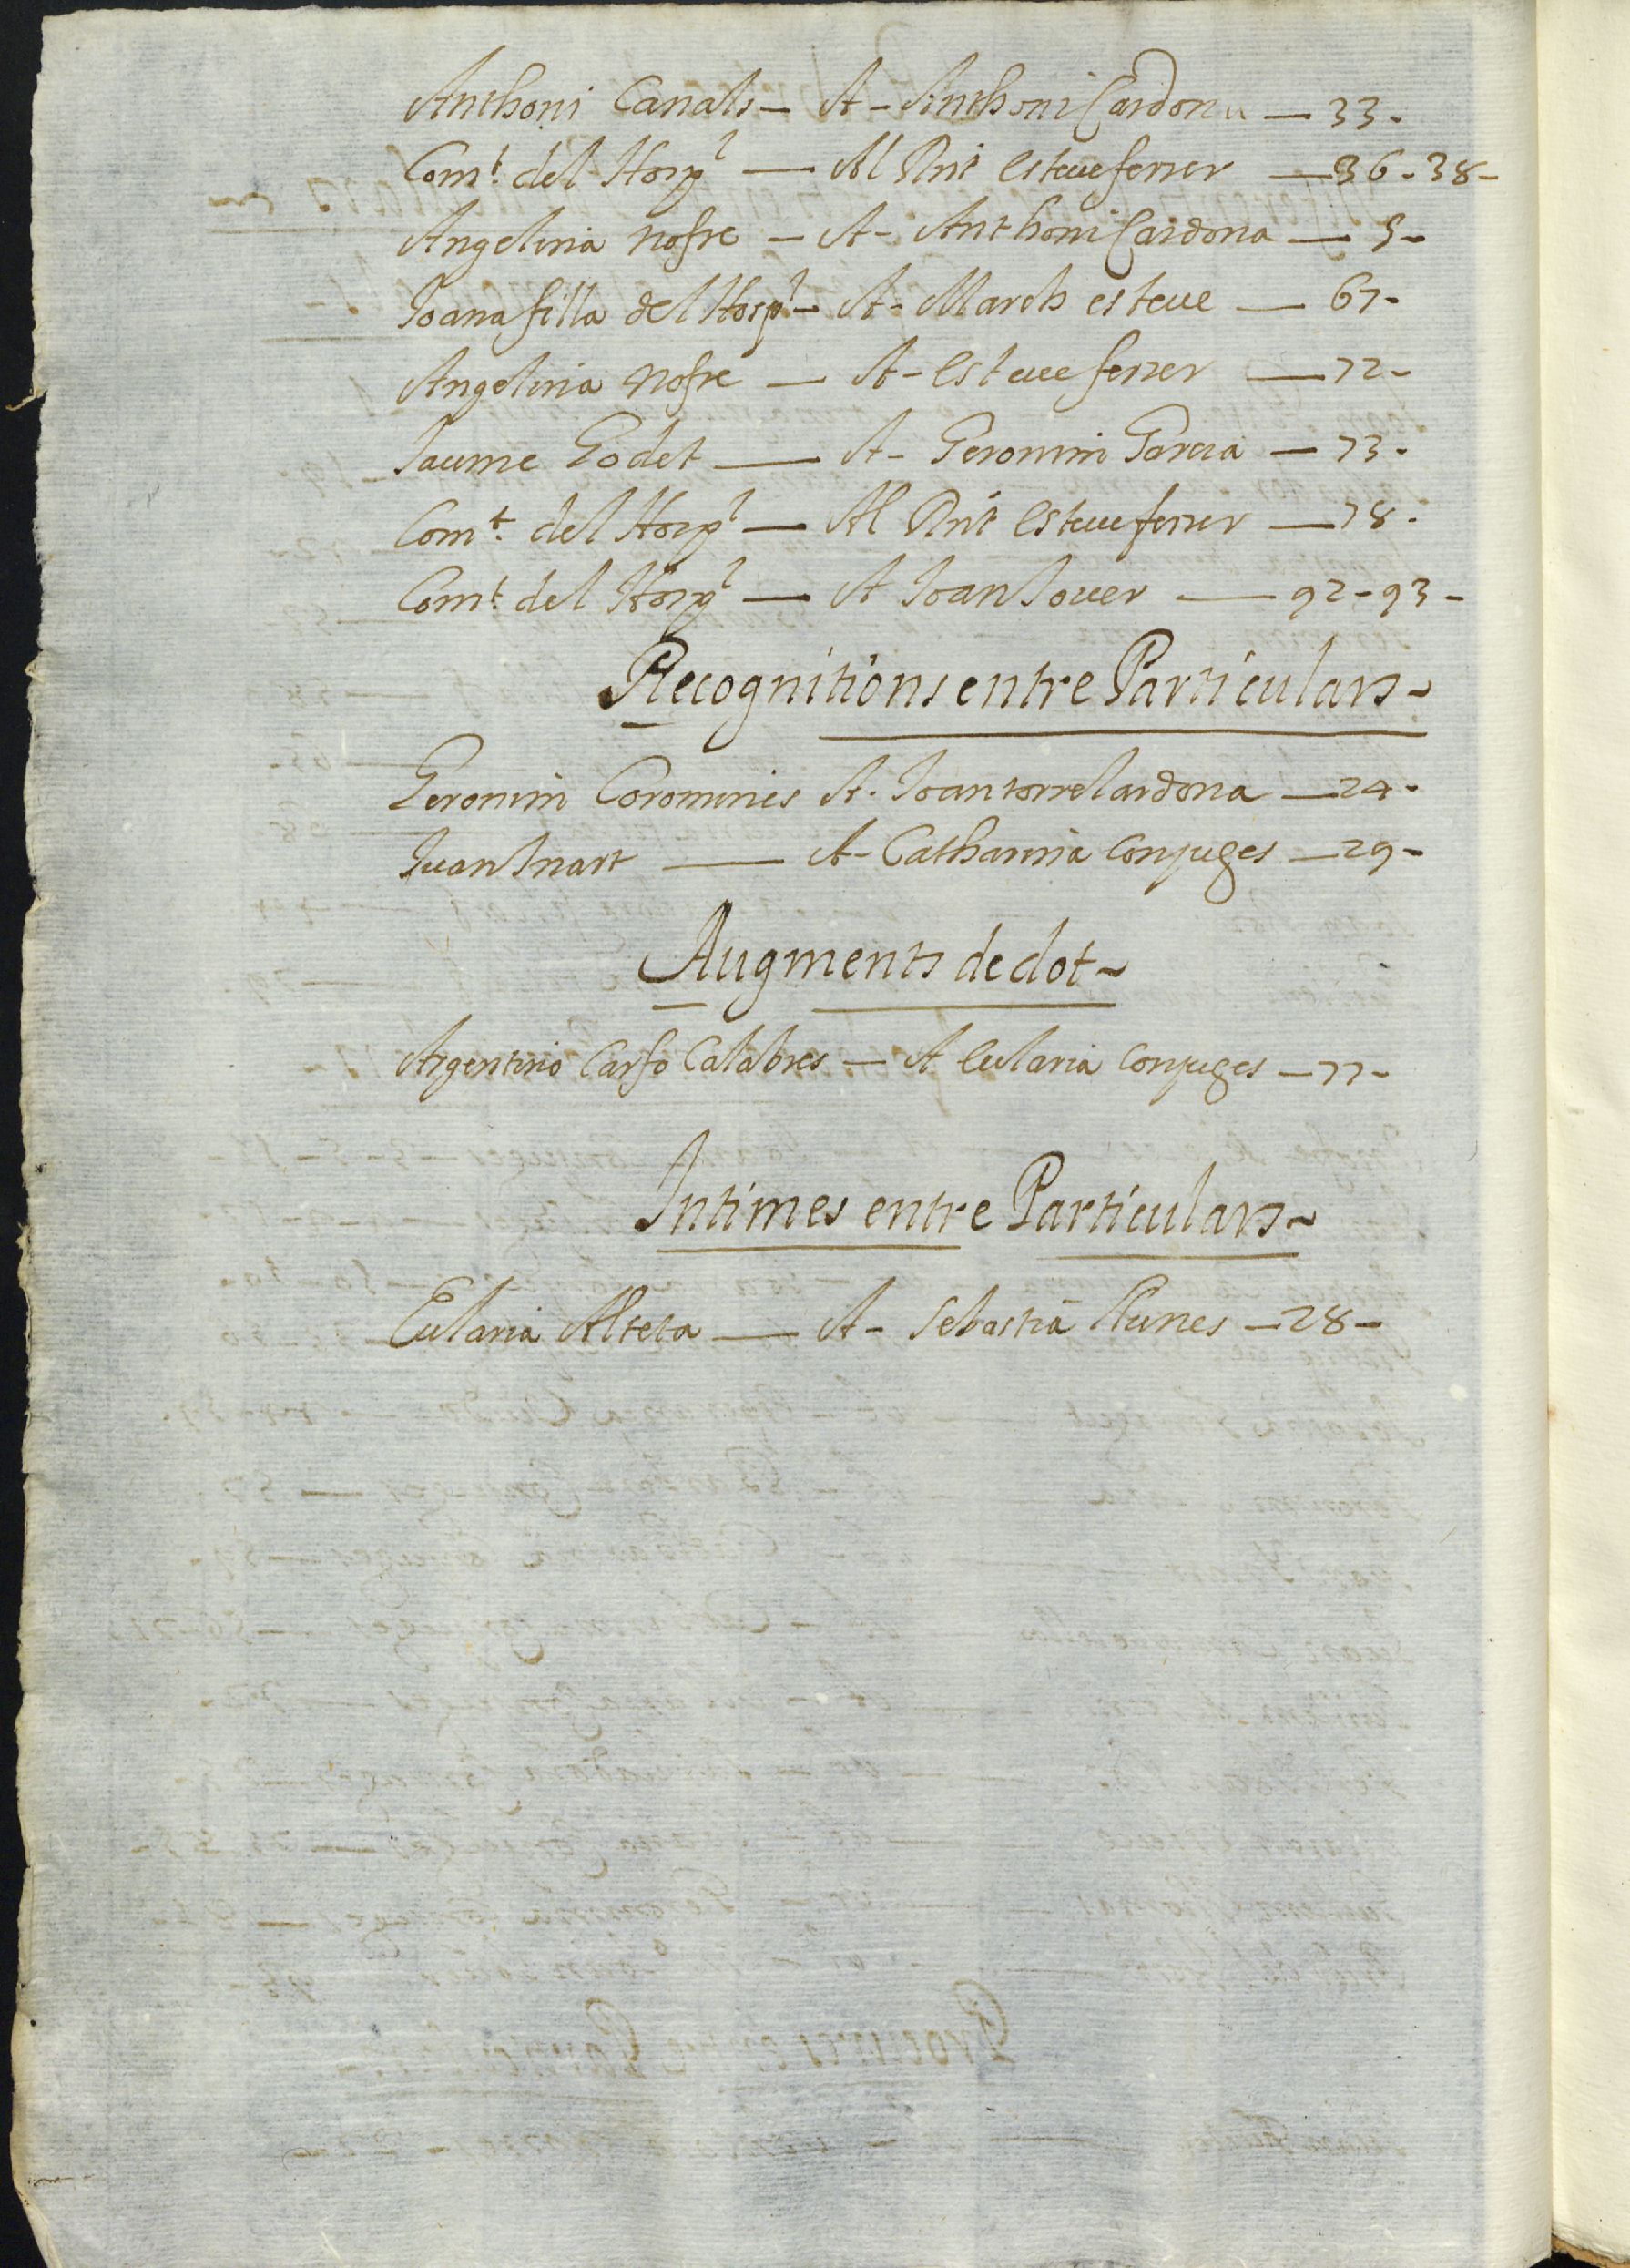 Anthoni Canals — A - Anthoni Cardona — 33 -
Comt. del Hospl — Al Rnt esteue ferrer — 36 - 38 -
Angelina nofre — A - Anthoni Cardona — 5 -
Joana filla del Hospl — A - March esteue — 67 -
Angelina nofre — A - esteue ferrer — 72 -
Jaume Godet — A - Geronim Garcia — 73 -
Comt. del Hospl — Al Rnt esteue ferrer — 78 -
Comt. del Hospl — A Joan Jouer — 92 - 93 -
Recognitions entre Particulars ~
Geronim Coromines A. Joan torrelardona — 24 -
Juan Inart — A - Catharina Conjuges — 29 -
Augments de dot ~
Argentino Carfo Calabres — A Eularia Conjuges — 77 -
Intimes entre Particulars ~
Eularia Alteta — A - Sebastià Nunes — 28 -